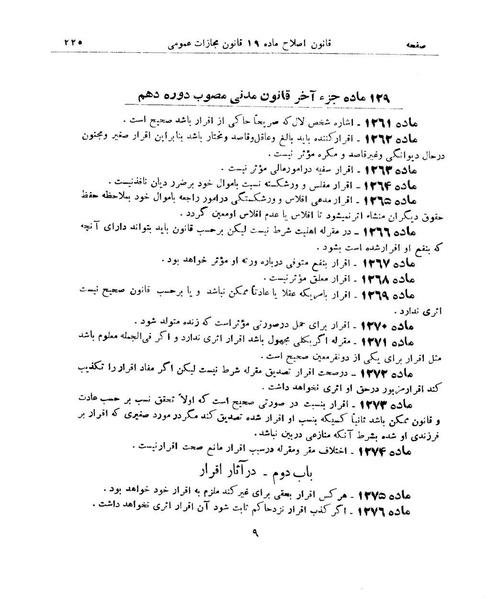 صفحه قانون اصلاح ماده ۱۹ قانون مجازات عمومی ۲۲۵
۱۲۹ ماده جزء آخر قانون مدنی مصوب دوره دهم
ماده ۱۲۶۱ - اشاره شخص لال که صریحاً حاکی از اقرار باشد صحیح است .
ماده ۱۲۶۲ - اقرارکننده باید بالغ وعاقل وقاصد ومختار باشد بنابراین اقرار صغیر ومجنون
درحال دیوانگی وغیرقاصد و مکره مؤثر نیست .
ماده ۱۲۶۳ - اقرار سفیه درامورمالی مؤثر نیست .
ماده ۱۲۶۴ - اقرار مفلس و ورشکسته نسبت باموال خود بر ضرر دیان نافذنیست .
ماده ۱۲۶۵ - اقرار مدعی افلاس و ورشکستگی درامور راجعه باموال خود بملاحظه حفظ
حقوق دیگران منشاء اثرنمیشود تا افلاس یا عدم افلاس اومعین گردد .
ماده ۱۲۶۶ - در مقرله اهلیت شرط نیست لیکن برحسب قانون باید بتواند دارای آنچه
که بنفع او اقرارشده است بشود .
ماده ۱۲۶۷ - اقرار بنفع متوفی درباره ورثه او مؤثر خواهد بود .
ماده ۱۲۶۸ - اقرار معلق مؤثرنیست .
ماده ۱۲۶۹ - اقرار بامریکه عقلا یا عادتاً ممکن نباشد و یا برحسب قانون صحیح نیست
اثری ندارد .
ماده ۱۲۷۰ - اقرار برای حمل درصورتی مؤثراست که زنده متولد شود .
ماده ۱۲۷۱ - مقرله اگربکلی مجهول باشد اقرار اثری ندارد و اگر فی‌الجمله معلوم باشد
مثل اقرار برای یکی از دونفرمعین صحیح است .
ماده ۱۲۷۲ - درصحت اقرار تصدیق مقرله شرط نیست لیکن اگر مفاد اقرار را تکذیب
کند اقرارمزبور درحق او اثری نخواهد داشت .
ماده ۱۲۷۳ - اقرار بنسب در صورتی صحیح است که اولاً تحقق نسب بر حسب عادت
و قانون ممکن باشد ثانیاً کسیکه بنسب او اقرار شده تصدیق کند مگردرمورد صغیری که اقرار بر
فرزندی او شده بشرط آنکه منازعی دربین نباشد .
ماده ۱۲۷۴ - اختلاف مقر ومقرله درسبب اقرار مانع صحت اقرارنیست .
باب دوم - درآثار اقرار
ماده ۱۲۷۵ - هرکس اقرار بحقی برای غیرکند ملزم به اقرار خود خواهد بود .
ماده ۱۲۷۶ - اگر کذب اقرار نزدحاکم ثابت شود آن اقرار اثری نخواهد داشت .
۹